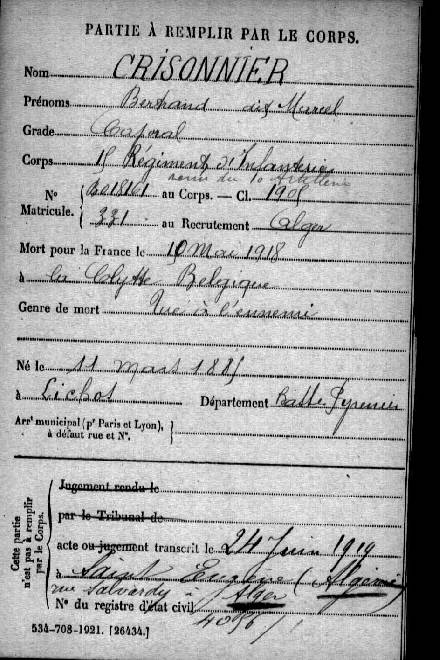 PARTIE À REMPLIR PAR LE CORPS.
Nom CRISONNIER
Prénoms Bertrand dit Marcel
Grade Caporal
Corps 15 Régiment d'Infanterie
venu du 10 Artillerie
N° au Corps. — Cl. 1905
Matricule. 331 au Recrutement Alger
Mort pour la France le 10 Mai 1918
à la Clytte Belgique
Genre de mort Tué à l'ennemi
Né le 11 mars 1885
à Lichos Département Basses Pyrénées
Arr' municipal (p' Paris et Lyon),
à défaut rue et N°.
Cette partie
n'est pas à remplir
par le Corps.
Jugement rendu le
par le Tribunal de
acte ou jugement transcrit le 24 Juin 1919
à Saint Eugène (Algérie)
rue Salvandy à Alger
N° du registre d'état civil
534-708-1921. [26434.]